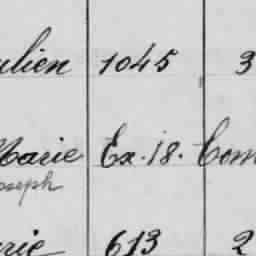 ulien 1045 3
Marie Ex. 18. Com
oseph
rie 613 2